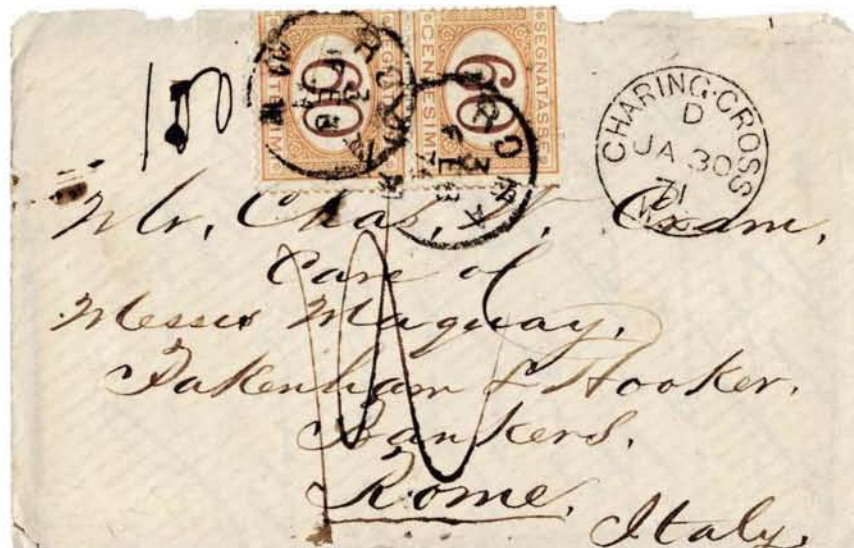 SEGNATASSE
60
CENTESIMI
SEGNATASSE
60
CENTESIMI
ROMA
ROMA
CHARING·CROSS
D
JA 30
71
W.C
Mr. Chas, Cram,
Care of
Messrs Maquay,
Pakenham & Hooker,
Bankers,
Rome,
Italy,